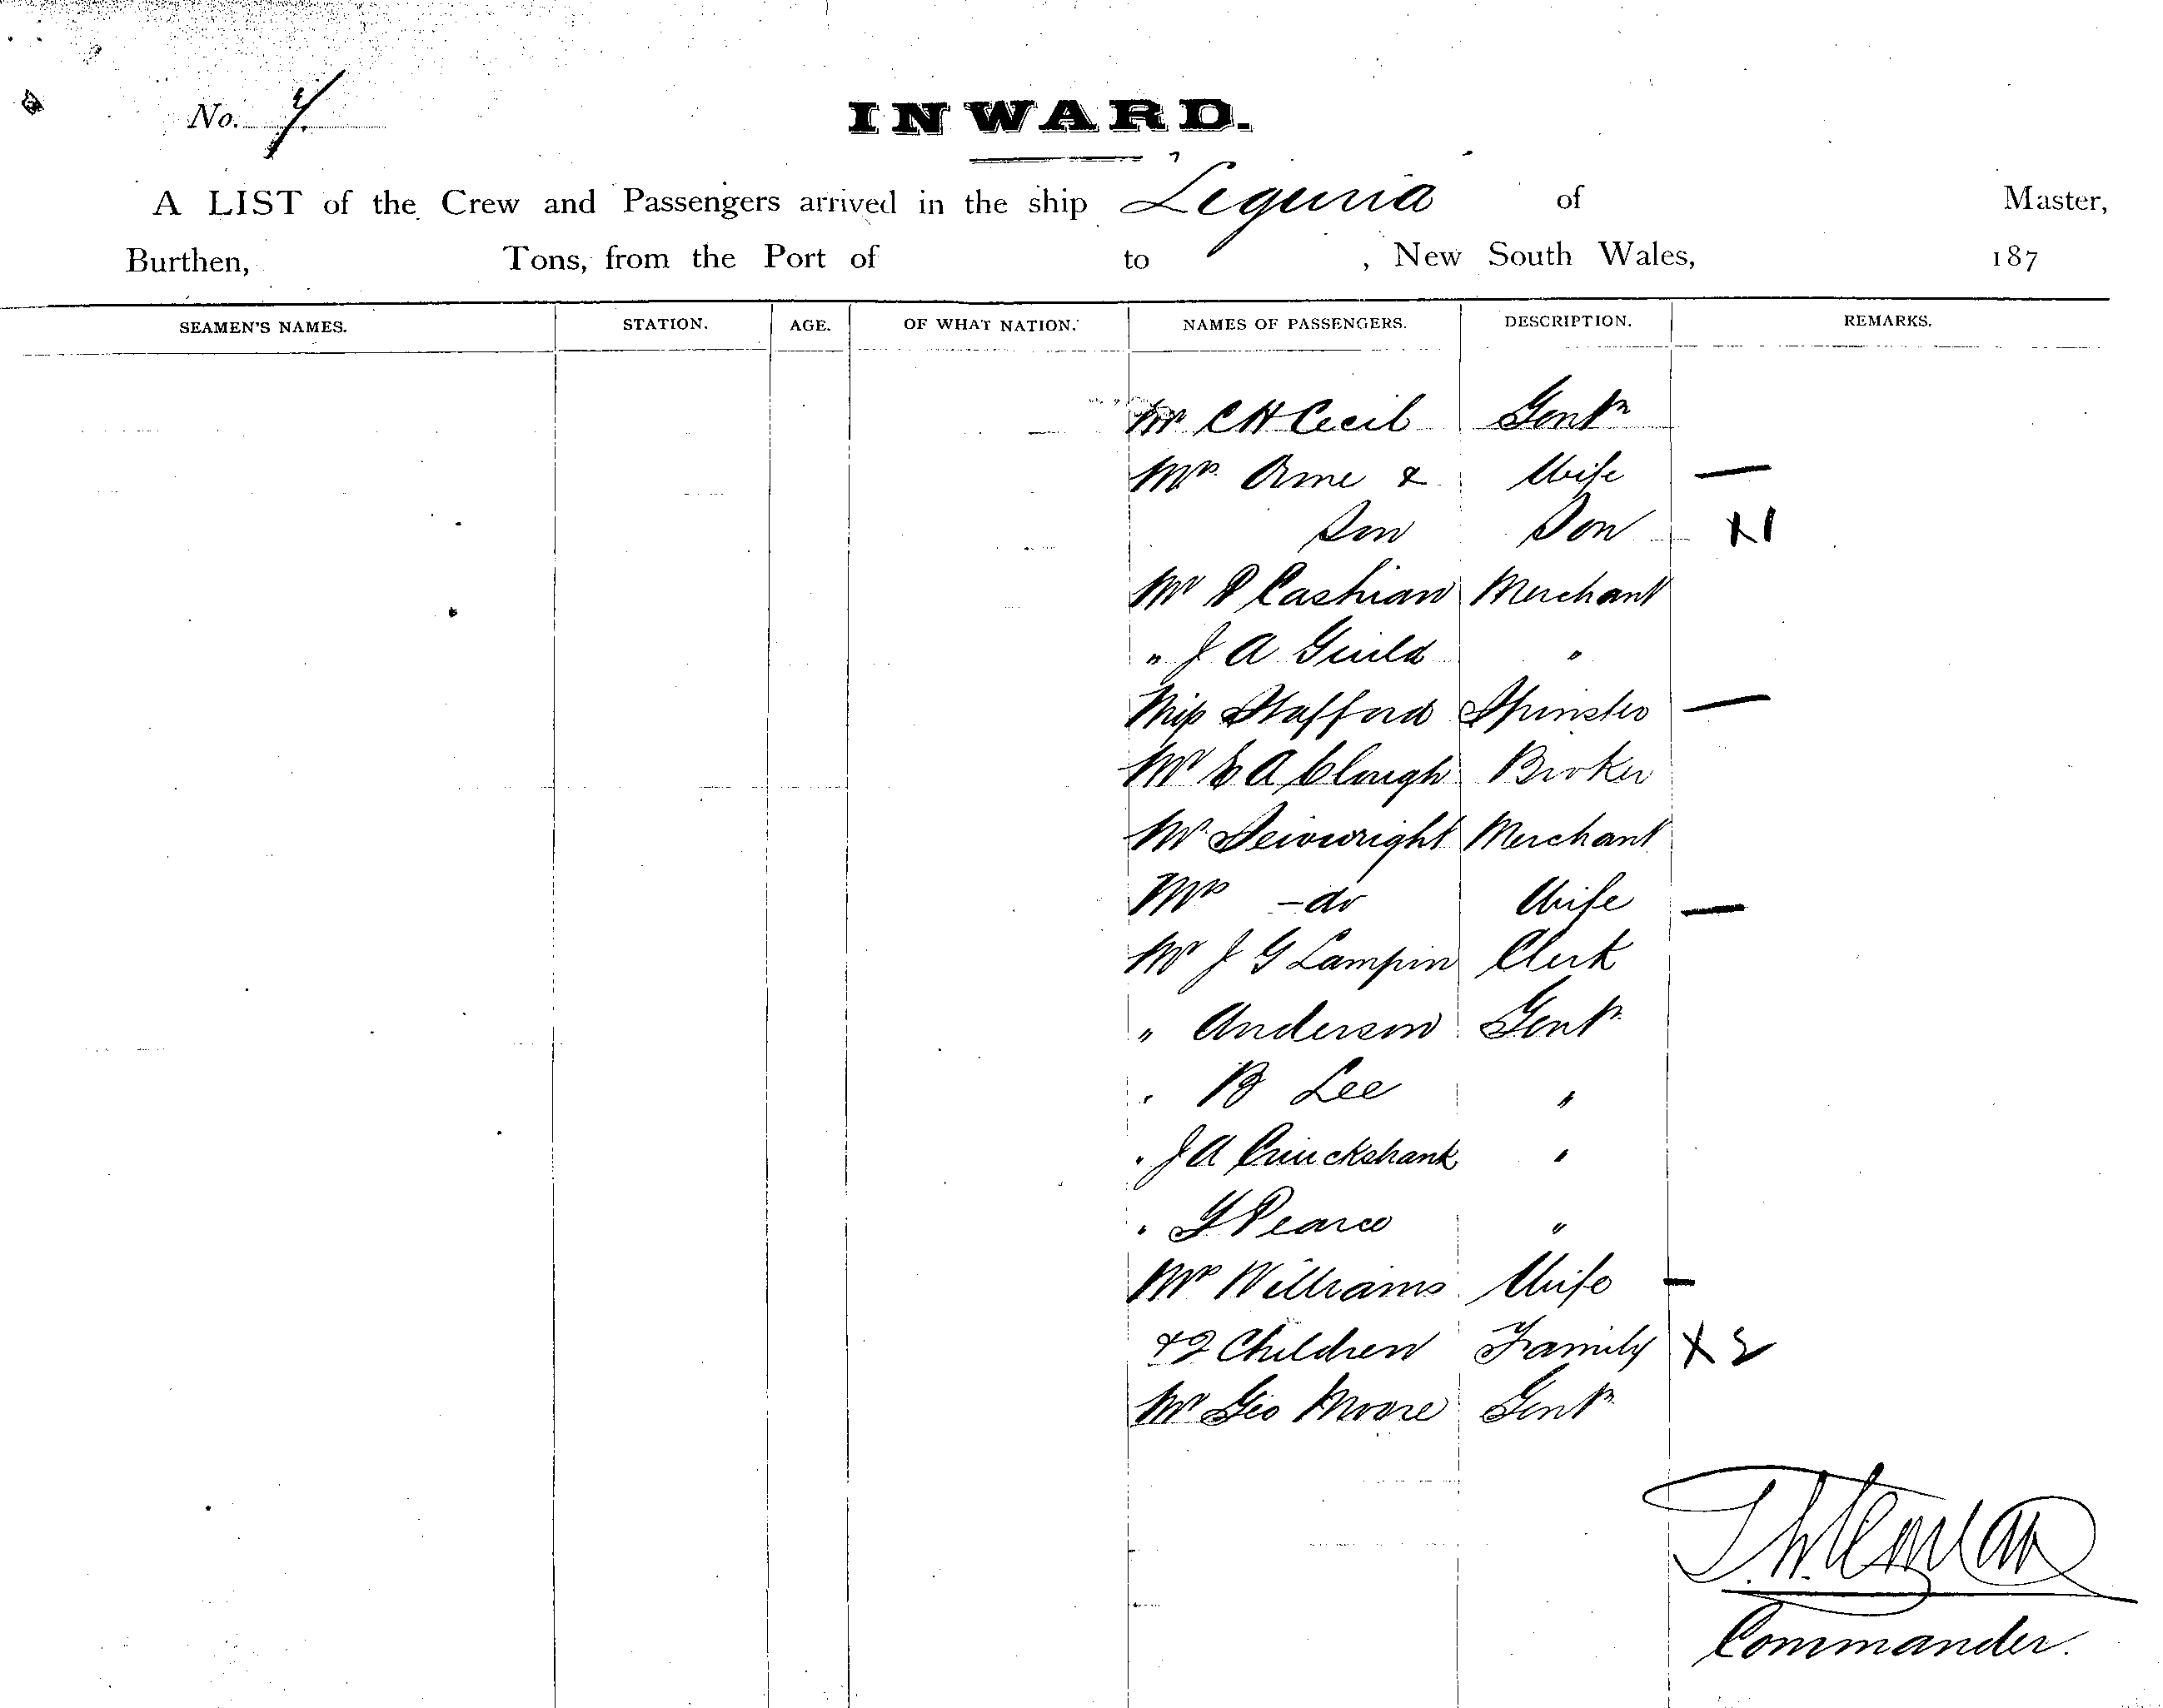 No. 4.
INWARD.
A LIST of the Crew and Passengers arrived in the ship Leguria of Master,
Burthen, Tons, from the Port of to , New South Wales, 187
SEAMEN'S NAMES. STATION. AGE. OF WHAT NATION. NAMES OF PASSENGERS. DESCRIPTION. REMARKS.
Mr C H Cecil Gentn
Mrs Orme & Wife —
Son Son X1
Mr P Cashian Merchant
" J A Guild "
Miss Stafford Spinster —
Mr E A Clough Broker
Mr Seivwright Merchant
Mrs -do Wife —
Mr J G Lampin Clerk
" Anderson Gentn
" B Lee "
" J A Cruickshank "
" G Pearce "
Mrs Williams Wife —
& 2 Children Family X 2
Mr Geo Moore Gentn
Commander.